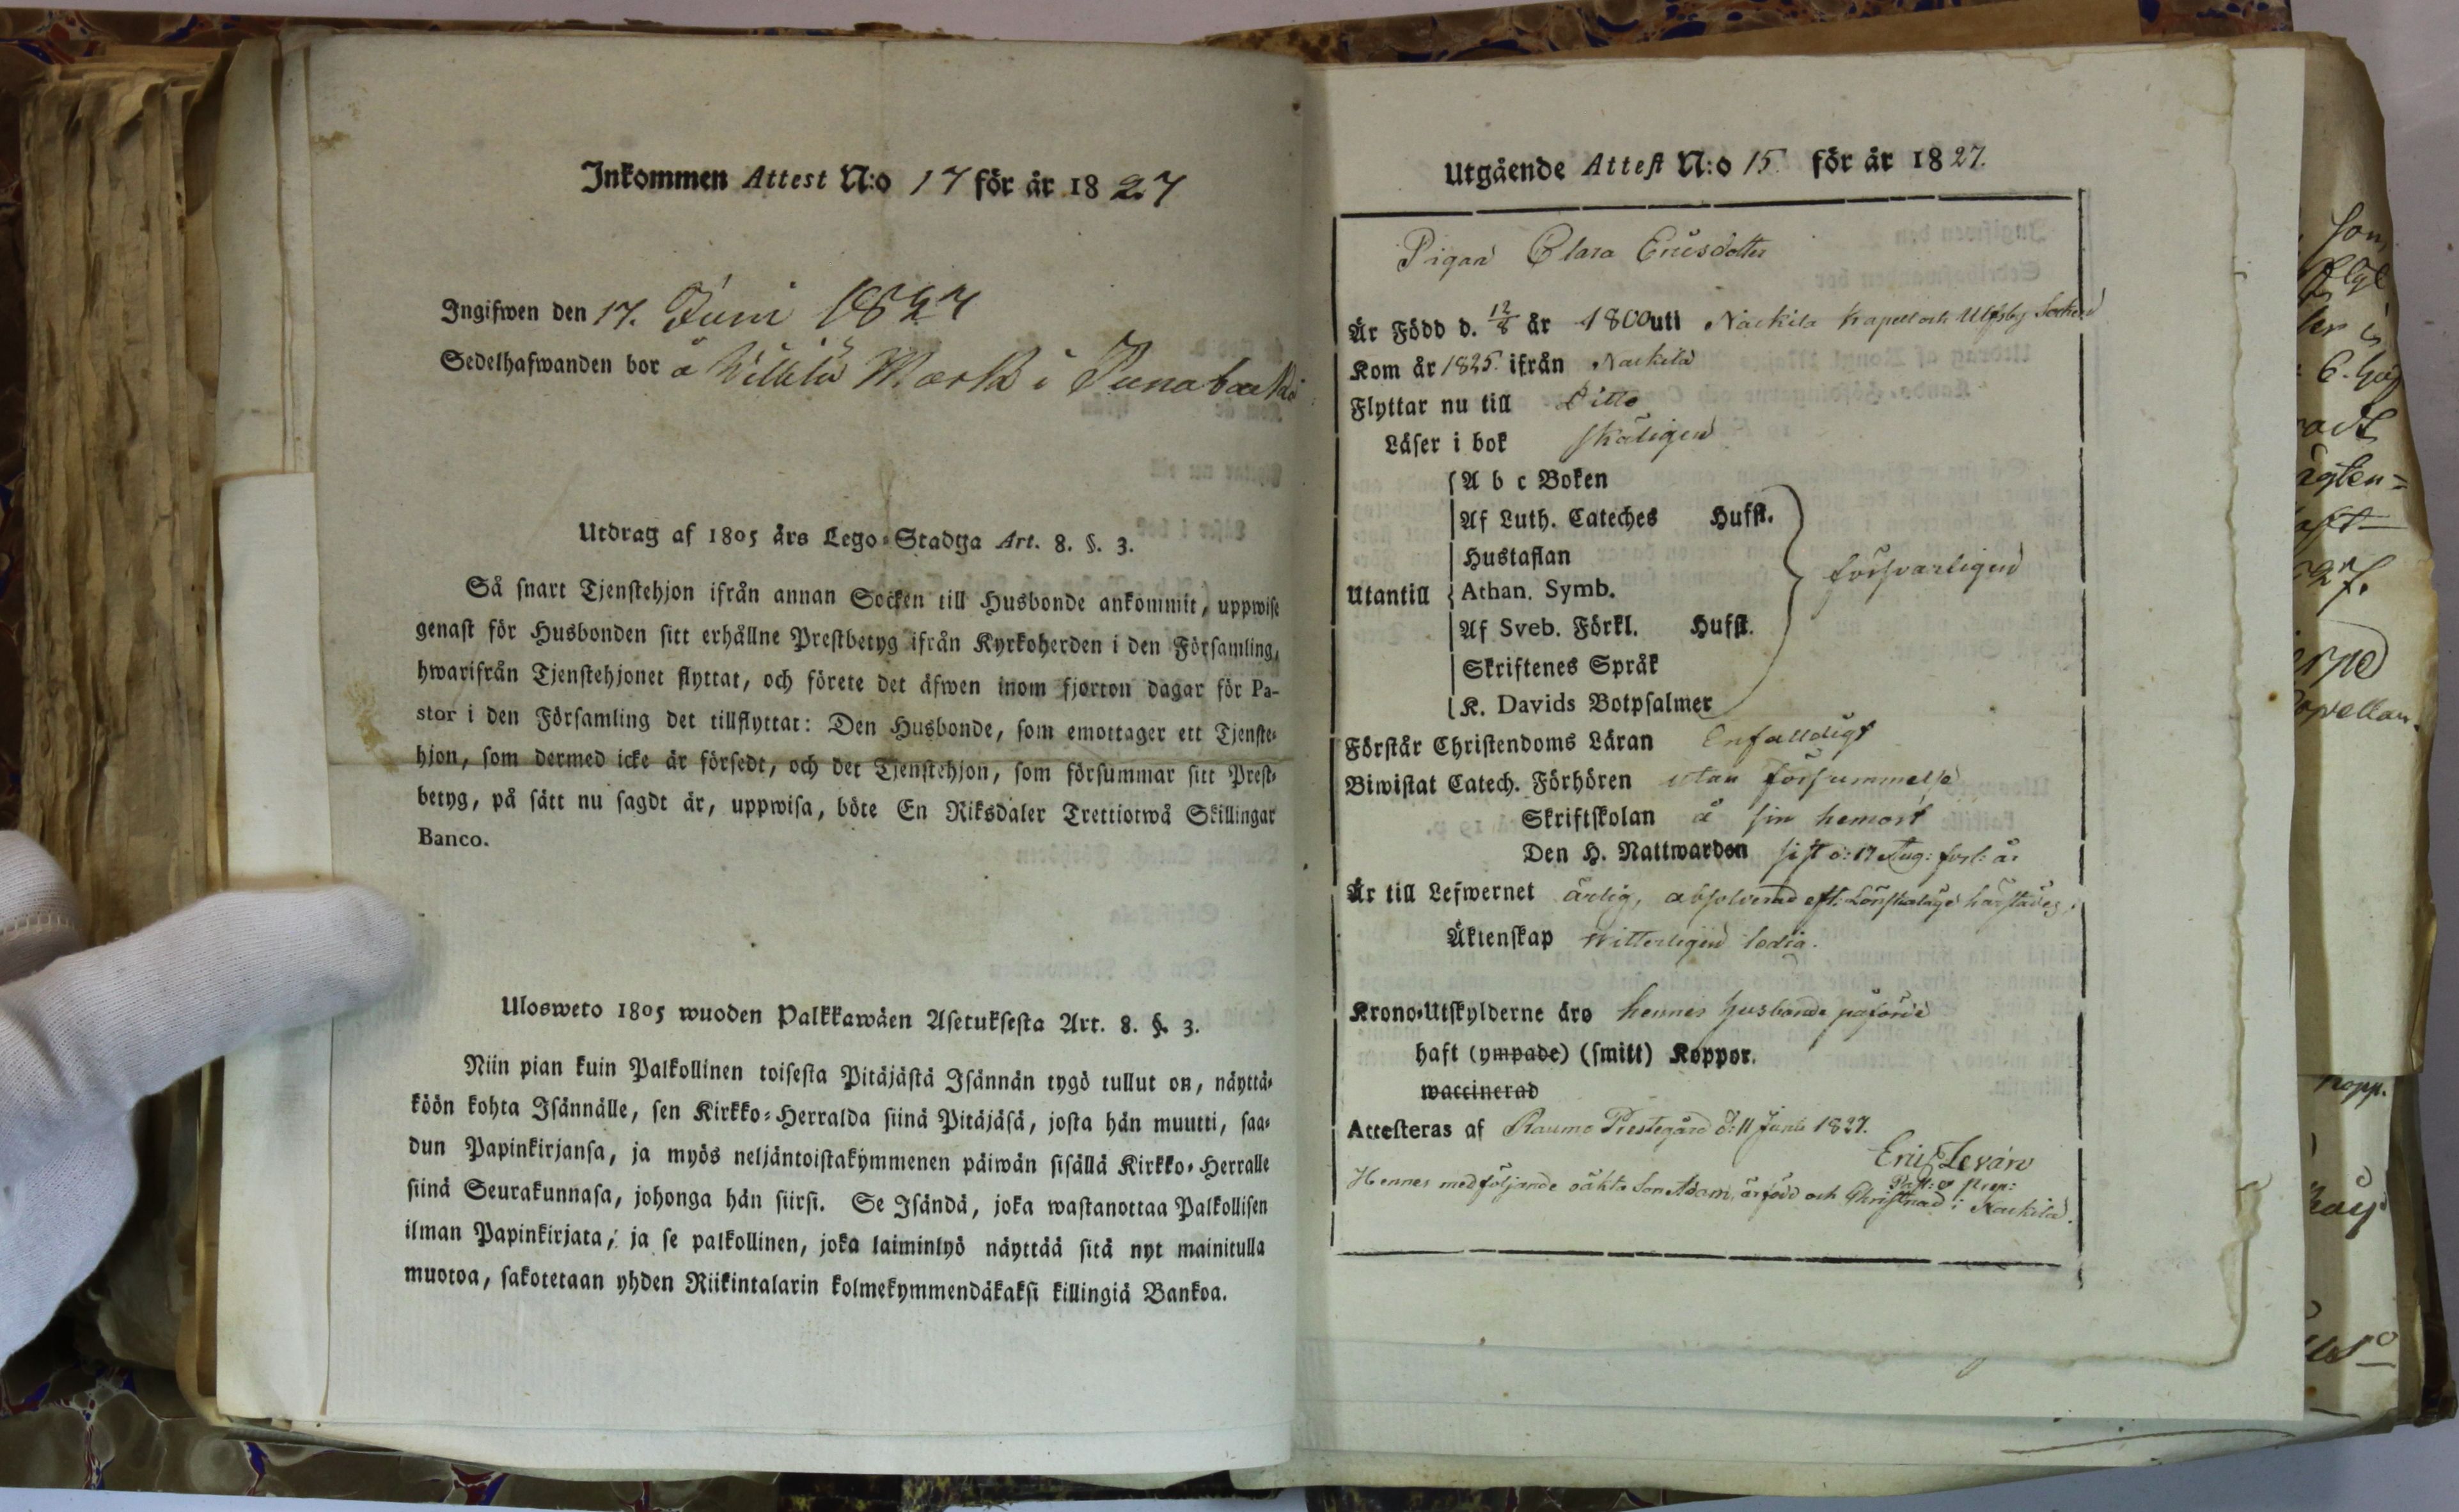 Inkommen Attest N:o 17 för år 1827
Ingifwen den 17. Juni 1827
Sedelhafwanden bor å Willilä Mark i Punabacka
Utdrag af 1805 års Lego-Stadga Art. 8. §. 3.
Så snart Tjenstehjon ifrån annan Socken till Husbonde ankommit, uppwise
genast för Husbonden sitt erhållne Prestbetyg ifrån Kyrkoherden i den Församling,
hwarifrån Tjenstehjonet flyttat, och förete det äfwen inom fjorton dagar för Pa-
stor i den Församling det tillflyttat: Den Husbonde, som emottager ett Tjenste-
hjon, som dermed icke är försedt, och det Tjenstehjon, som försummar sitt Prest-
betyg, på sätt nu sagdt är, uppwisa, böte En Riksdaler Trettiotwå Skillingar
Banco.
Ulosweto 1805 wuoden Palkkawäen Asetuksesta Art. 8. §. 3.
Niin pian kuin Palkollinen toisesta Pitäjästä Isännän tygö tullut on, näyttä-
köön kohta Isännälle, sen Kirkko-Herralda siinä Pitäjäsä, josta hän muutti, saa-
dun Papinkirjansa, ja myös neljäntoistakymmenen päiwän sisällä Kirkko-Herralle
siinä Seurakunnasa, johonga hän siirsi. Se Isändä, joka wastanottaa Palkollisen
ilman Papinkirjata, ja se palkollinen, joka laiminlyö näyttää sitä nyt mainitulla
muotoa, sakotetaan yhden Riikintalarin kolmekymmendäkaksi killingiä Bankoa.
Utgående Attest N:o 15 för år 1827.
Pigan Clara Ericsdotter
Är Född d. 12/8 år 1800 uti Nackila Kapell och Ulfsby Socken
Kom år 1825 ifrån Nackila
Flyttar nu till Ditto
Läser i bok skäligen
A b c Boken
Af Luth. Cateches Hufst.
Hustaflan
Utantill Athan. Symb. försvarligen
Af Sveb. Förkl. Hufst.
Skriftenes Språk
K. Davids Botpsalmer
Förstår Christendoms Läran Enfalldigt
Biwistat Catech. Förhören utan försummelse
Skriftskolan å sin hemort
Den H. Nattwarden sist d: 17 Aug: förl: år
Är till Lefwernet ärlig, absolverad eft. Lönskaläge härstädes,
Äktenskap witterligen ledig.
Krono-Utskylderne äro hennes husbonde påförde
haft (ympade) (smitt) Koppor.
waccinerad
Attesteras af Raumo Prestegård d: 11 Junii 1827.
Eric Levän
Past: o Prep:
Hennes medföljande oäkta Son Adam, är född och Christnad i Nackila.